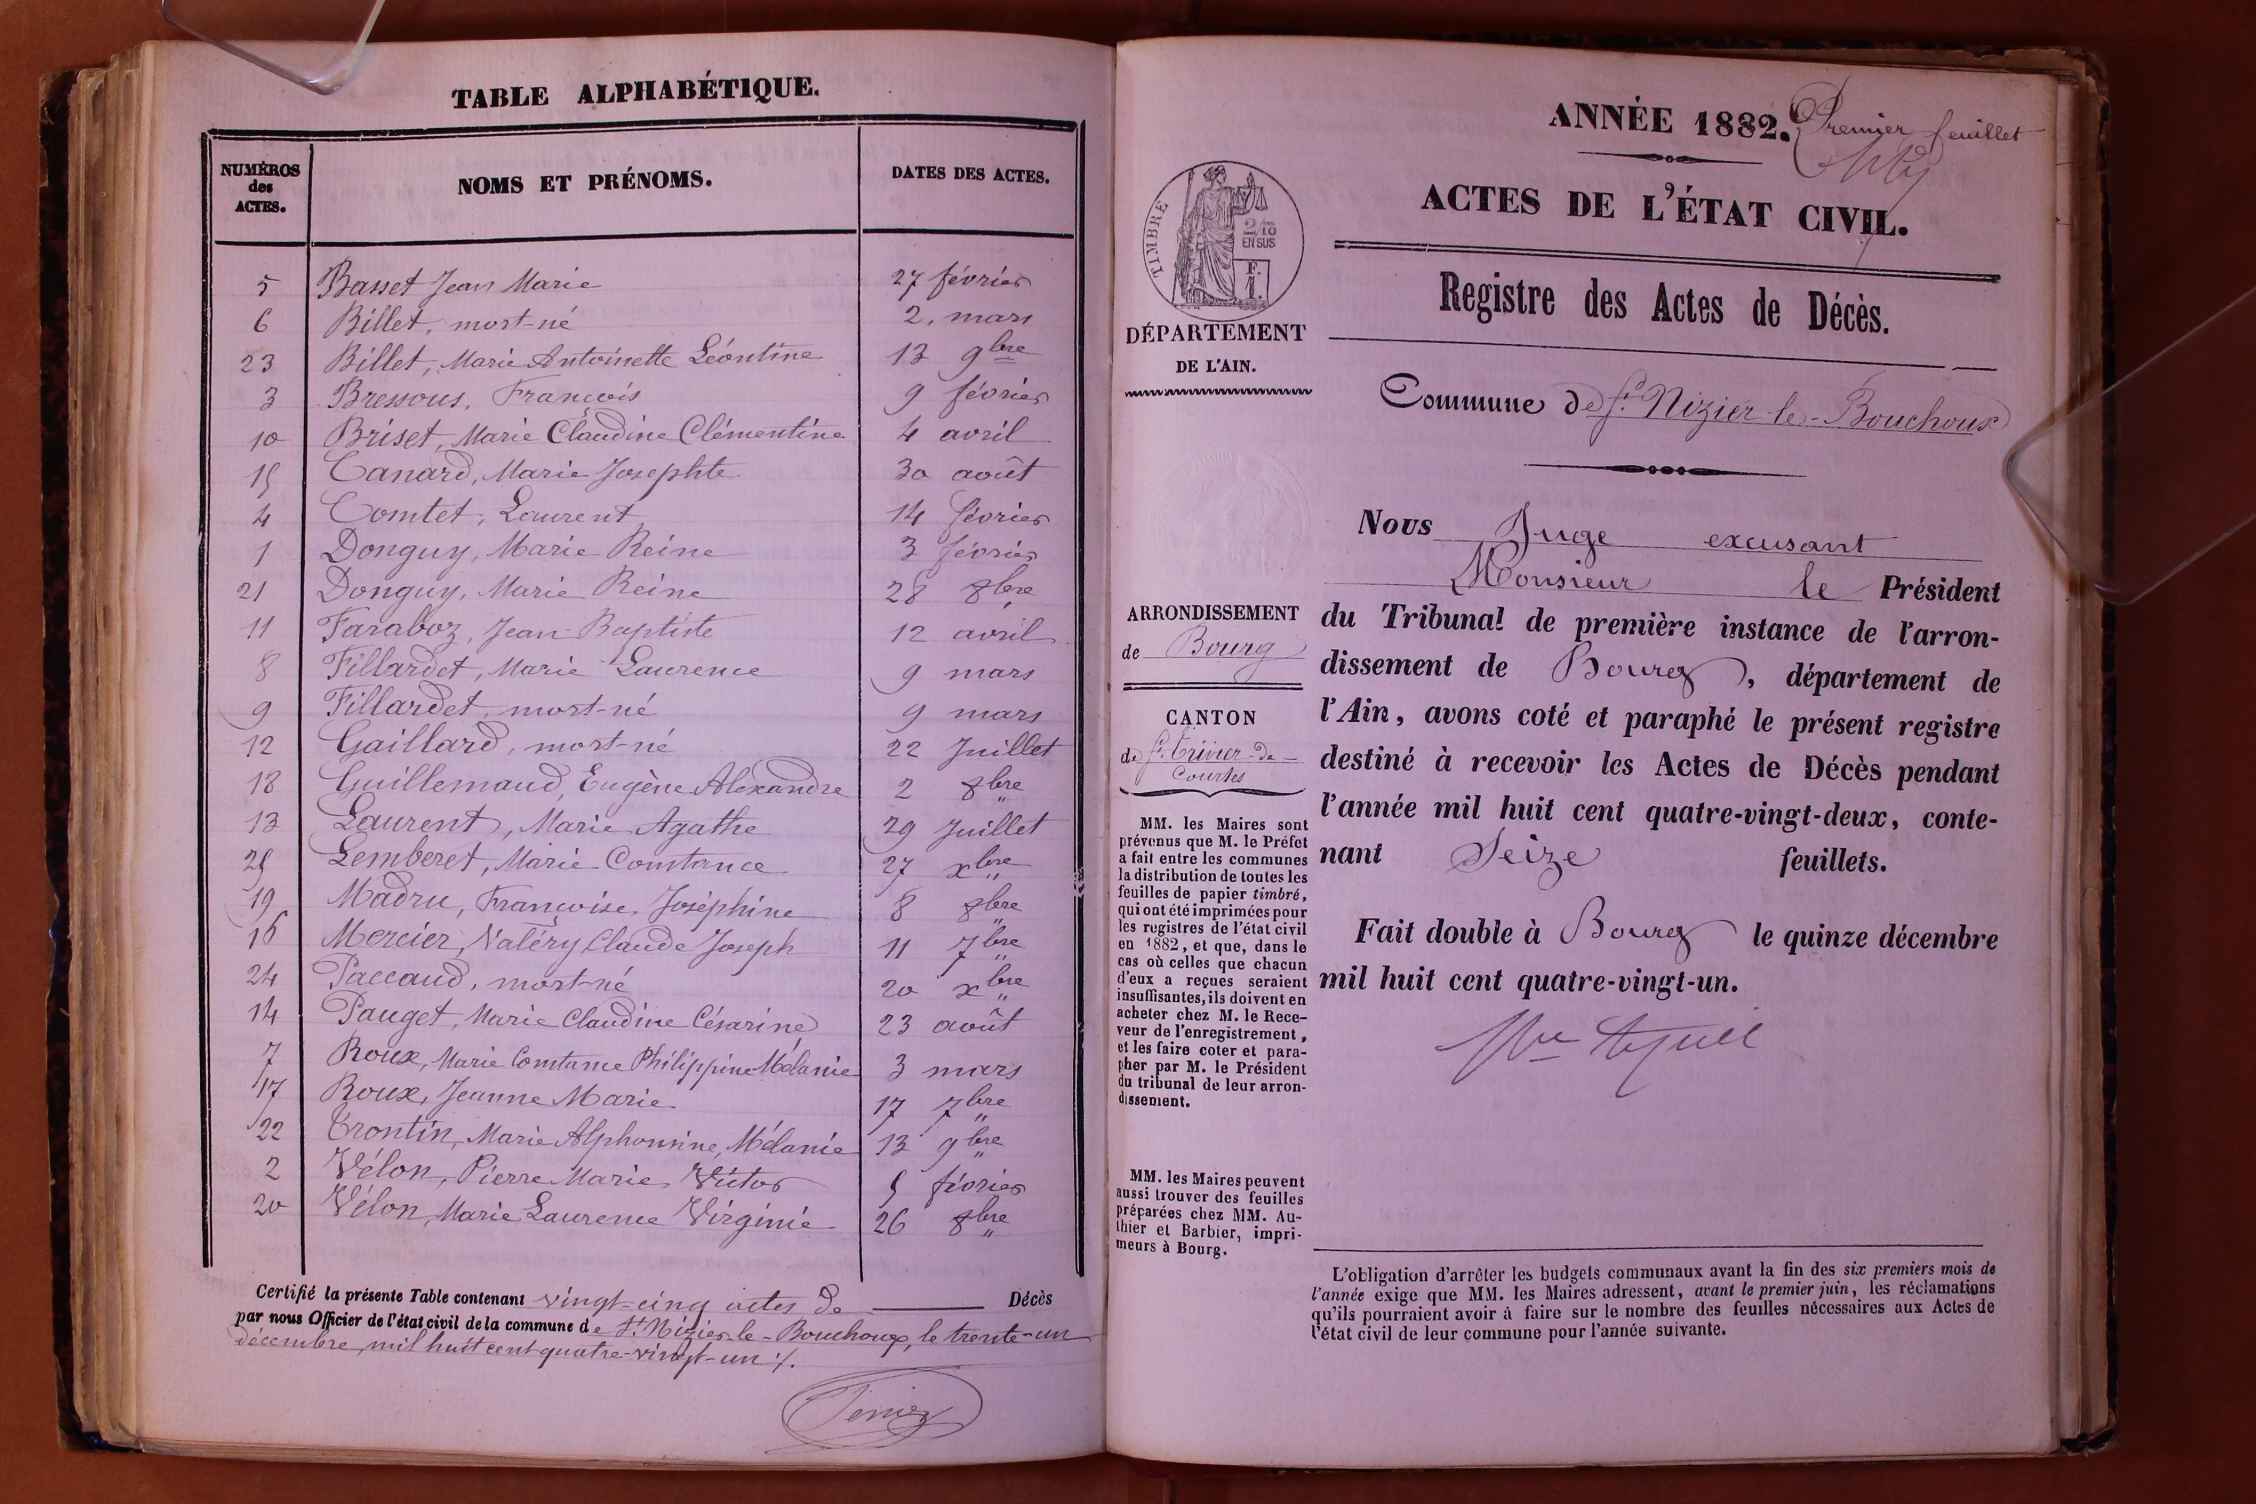 TABLE ALPHABÉTIQUE.
NUMÉROS des ACTES. NOMS ET PRÉNOMS. DATES DES ACTES.
5 Basset Jean Marie 27 février
6 Billet, mort-né 2. mars
23 Billet, Marie Antoinette Léontine 13 9bre
3 Bressous, François 9 février
10 Briset, Marie Claudine Clémentine 4 avril
15 Canard, Marie Josephte 30 août
4 Comtet, Laurent 14 février
1 Donguy, Marie Reine 3 février
21 Donguy, Marie Reine 28 8bre
11 Faraboz, Jean-Baptiste 12 avril
8 Fillardet, Marie Laurence 9 mars
9 Fillardet, mort-né 9 mars
12 Gaillard, mort-né 22 Juillet
18 Guillemaud, Eugène Alexandre 2 8bre
13 Laurent, Marie Agathe 29 Juillet
25 Lemberet, Marie Constance 27 xbre
19 Madru, Françoise, Joséphine 8 8bre
16 Mercier, Valéry Claude Joseph 11 7bre
24 Paccaud, mort-né 20 xbre
14 Pauget, Marie Claudine Césarine 23 août
7 Roux, Marie Constance Philippine Mélanie 3 mars
17 Roux, Jeanne Marie 17 7bre
22 Trontin, Marie Alphonsine, Mélanie 13 9bre
2 Vélon, Pierre Marie Victor 5 février
20 Vélon, Marie Laurence Virginie 26 8bre
Certifié la présente Table contenant vingt-cinq actes de Décès
par nous Officier de l'état civil de la commune de St. Nizier-le-Bouchoux, le trente-un
décembre, mil huit cent quatre-vingt-un ./.
ANNÉE 1882. Premier feuillet
ACTES DE L'ÉTAT CIVIL.
TIMBRE
2/10
EN SUS
F.
1.
DÉPARTEMENT
DE L'AIN.
Registre des Actes de Décès.
Commune de St. Nizier-le-Bouchoux
ARRONDISSEMENT
de Bourg
CANTON
de St. Trivier-de-
Courtes
MM. les Maires sont
prévenus que M. le Préfet
a fait entre les communes
la distribution de toutes les
feuilles de papier timbré,
qui ont été imprimées pour
les registres de l'état civil
en 1882, et que, dans le
cas où celles que chacun
d'eux a reçues seraient
insuffisantes, ils doivent en
acheter chez M. le Rece-
veur de l'enregistrement,
et les faire coter et para-
pher par M. le Président
du tribunal de leur arron-
dissement.
MM. les Maires peuvent
aussi trouver des feuilles
préparées chez MM. Au-
thier et Barbier, impri-
meurs à Bourg.
Nous Juge excusant
Monsieur le Président
du Tribunal de première instance de l'arron-
dissement de Bourg, département de
l'Ain, avons coté et paraphé le présent registre
destiné à recevoir les Actes de Décès pendant
l'année mil huit cent quatre-vingt-deux, conte-
nant Seize feuillets.
Fait double à Bourg le quinze décembre
mil huit cent quatre-vingt-un.
L'obligation d'arrêter les budgets communaux avant la fin des six premiers mois de
l'année exige que MM. les Maires adressent, avant le premier juin, les réclamations
qu'ils pourraient avoir à faire sur le nombre des feuilles nécessaires aux Actes de
l'état civil de leur commune pour l'année suivante.